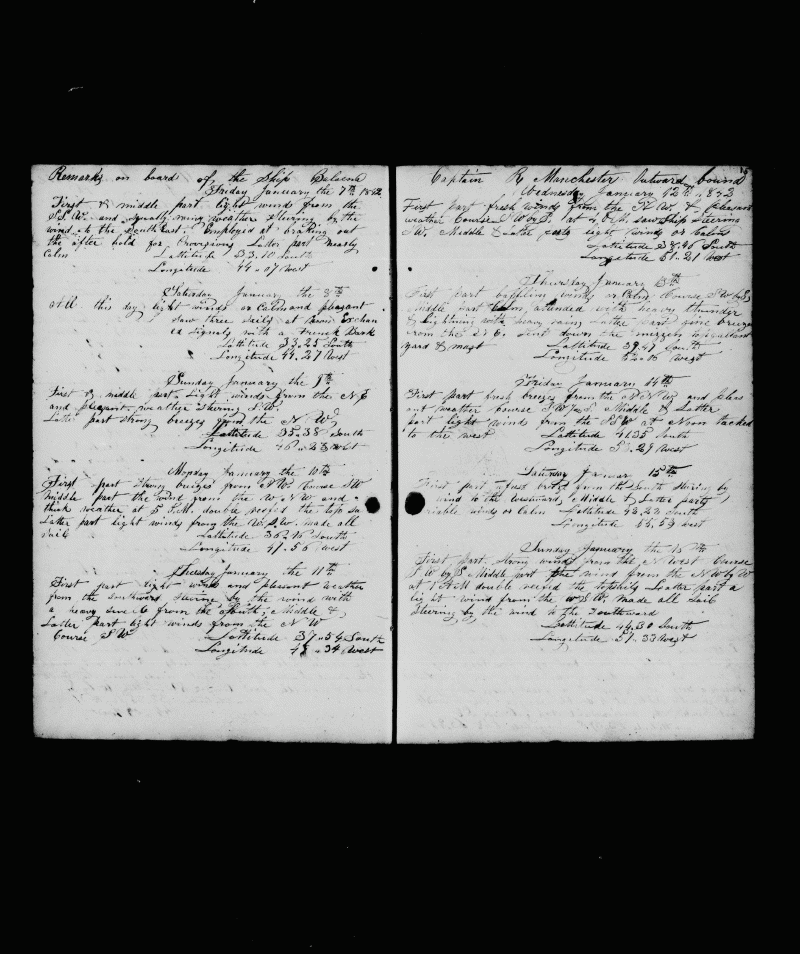 Remarks on board of the Ship Balaena
Friday January the 7th 1842
First & middle part light winds from the
S.S.W. and squally weather steering by the
wind to the South East, Employed at breaking out
the after hold for Latter part nearly
Calm Lattitude 33.10 South
Longitude 44..07 West
Saturday January the 8th
All this day light winds or Calm and pleasant
saw three sails at Exchan
ed signals with a French Bark
Lattitude 33.25 South
Longitude 44.27 West
Sunday January the 9th
First & middle part Light winds from the N.E
and pleasant weather Stering S.W.
Latter part Strong breezes from the N.W.
Lattitude 35.38 South
Longitude 46..23 West
Monday January the 10th
First part Strong breezes from N.W. Course SW
middle part the wind from the W.N.W and
thick weather at 5 P.M. double reefed the top Sa
Latter part light winds from the W.S.W. made all
Sail Lattitude 36.46 South
Longitude 47.56 West
Tuesday January the 11th
First part light winds and pleasant weather
from the Southward Stering by the wind with
a heavy swell from the South, Middle &
Latter part light winds from the N W
Course S W Lattitude 37..54 South
Longitude 48..34 West
Captain R Manchester Outward bound
Wednesday January 12th 1842
First Part fresh winds from the N.W. & pleasant
weather Course SW by S. at 4 P.M. saw Ship Steering
SW. Middle & Latter parts light winds or Calm
Lattitude 38.46 South
Longitude 51.21 West
Thursday January 13th
First part baffling winds or Calm Course SW by S,
middle part Calm, attended with heavy thunder
& Lightning with heavy rain, Latter part fine breeze
from the S.E. Sent down the mizzen topgallant
yard & mast Lattitude 39.47 South
Longitude 52..15 West
Friday January 14th
First part fresh breezes from the N.N.W. and pleas
ant weather course SW by S. Middle & Latter
part light wind from the SSW at Noon tacked
to the West Lattitude 41.35 South
Longitude 53.29 West
Saturday January 15th
First part fresh wind from the South Stering by
wind to the Westward, Middle & Latter parts
riable winds or Calm Lattitude 43.23 South
Longitude 55.53 west
Sunday January the 16th
First Part Strong winds from the N West Course
S W by S Middle part the wind from the NW by W
at 1 A.M double reefed the topsails Latter part a
light wind from the W.S.W. made all Sail
Steering by the wind to the Southward
Lattitude 44.30 South
Longitude 57..33 West